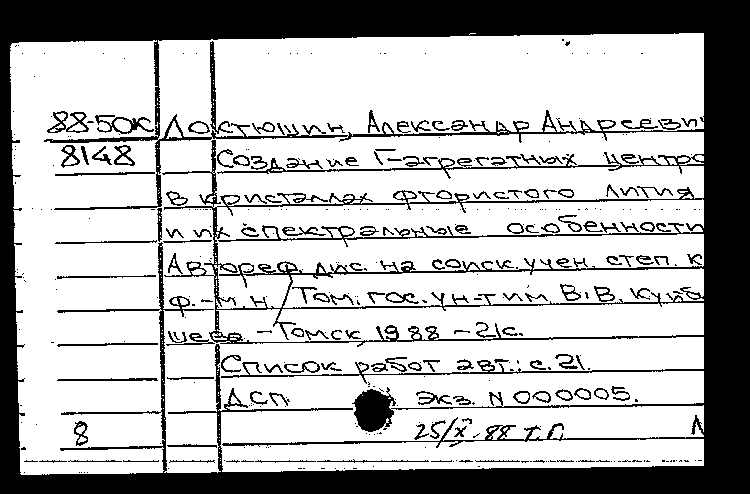 88-50к Локтюшин, Александр Андреевич
8148 Создание F-агрегатных центро
в кристаллах фтористого лития
и их спектральные особенности
Автореф. дис. на соиск. учен. степ. к
ф.-м.н. / Том. гос. ун-т им. В.В. Куйб
шева. - Томск, 1988 - 21с.
Список работ авт.: с. 21.
ДСП Экз. N 000005.
8 25/X-88 т.П. Л